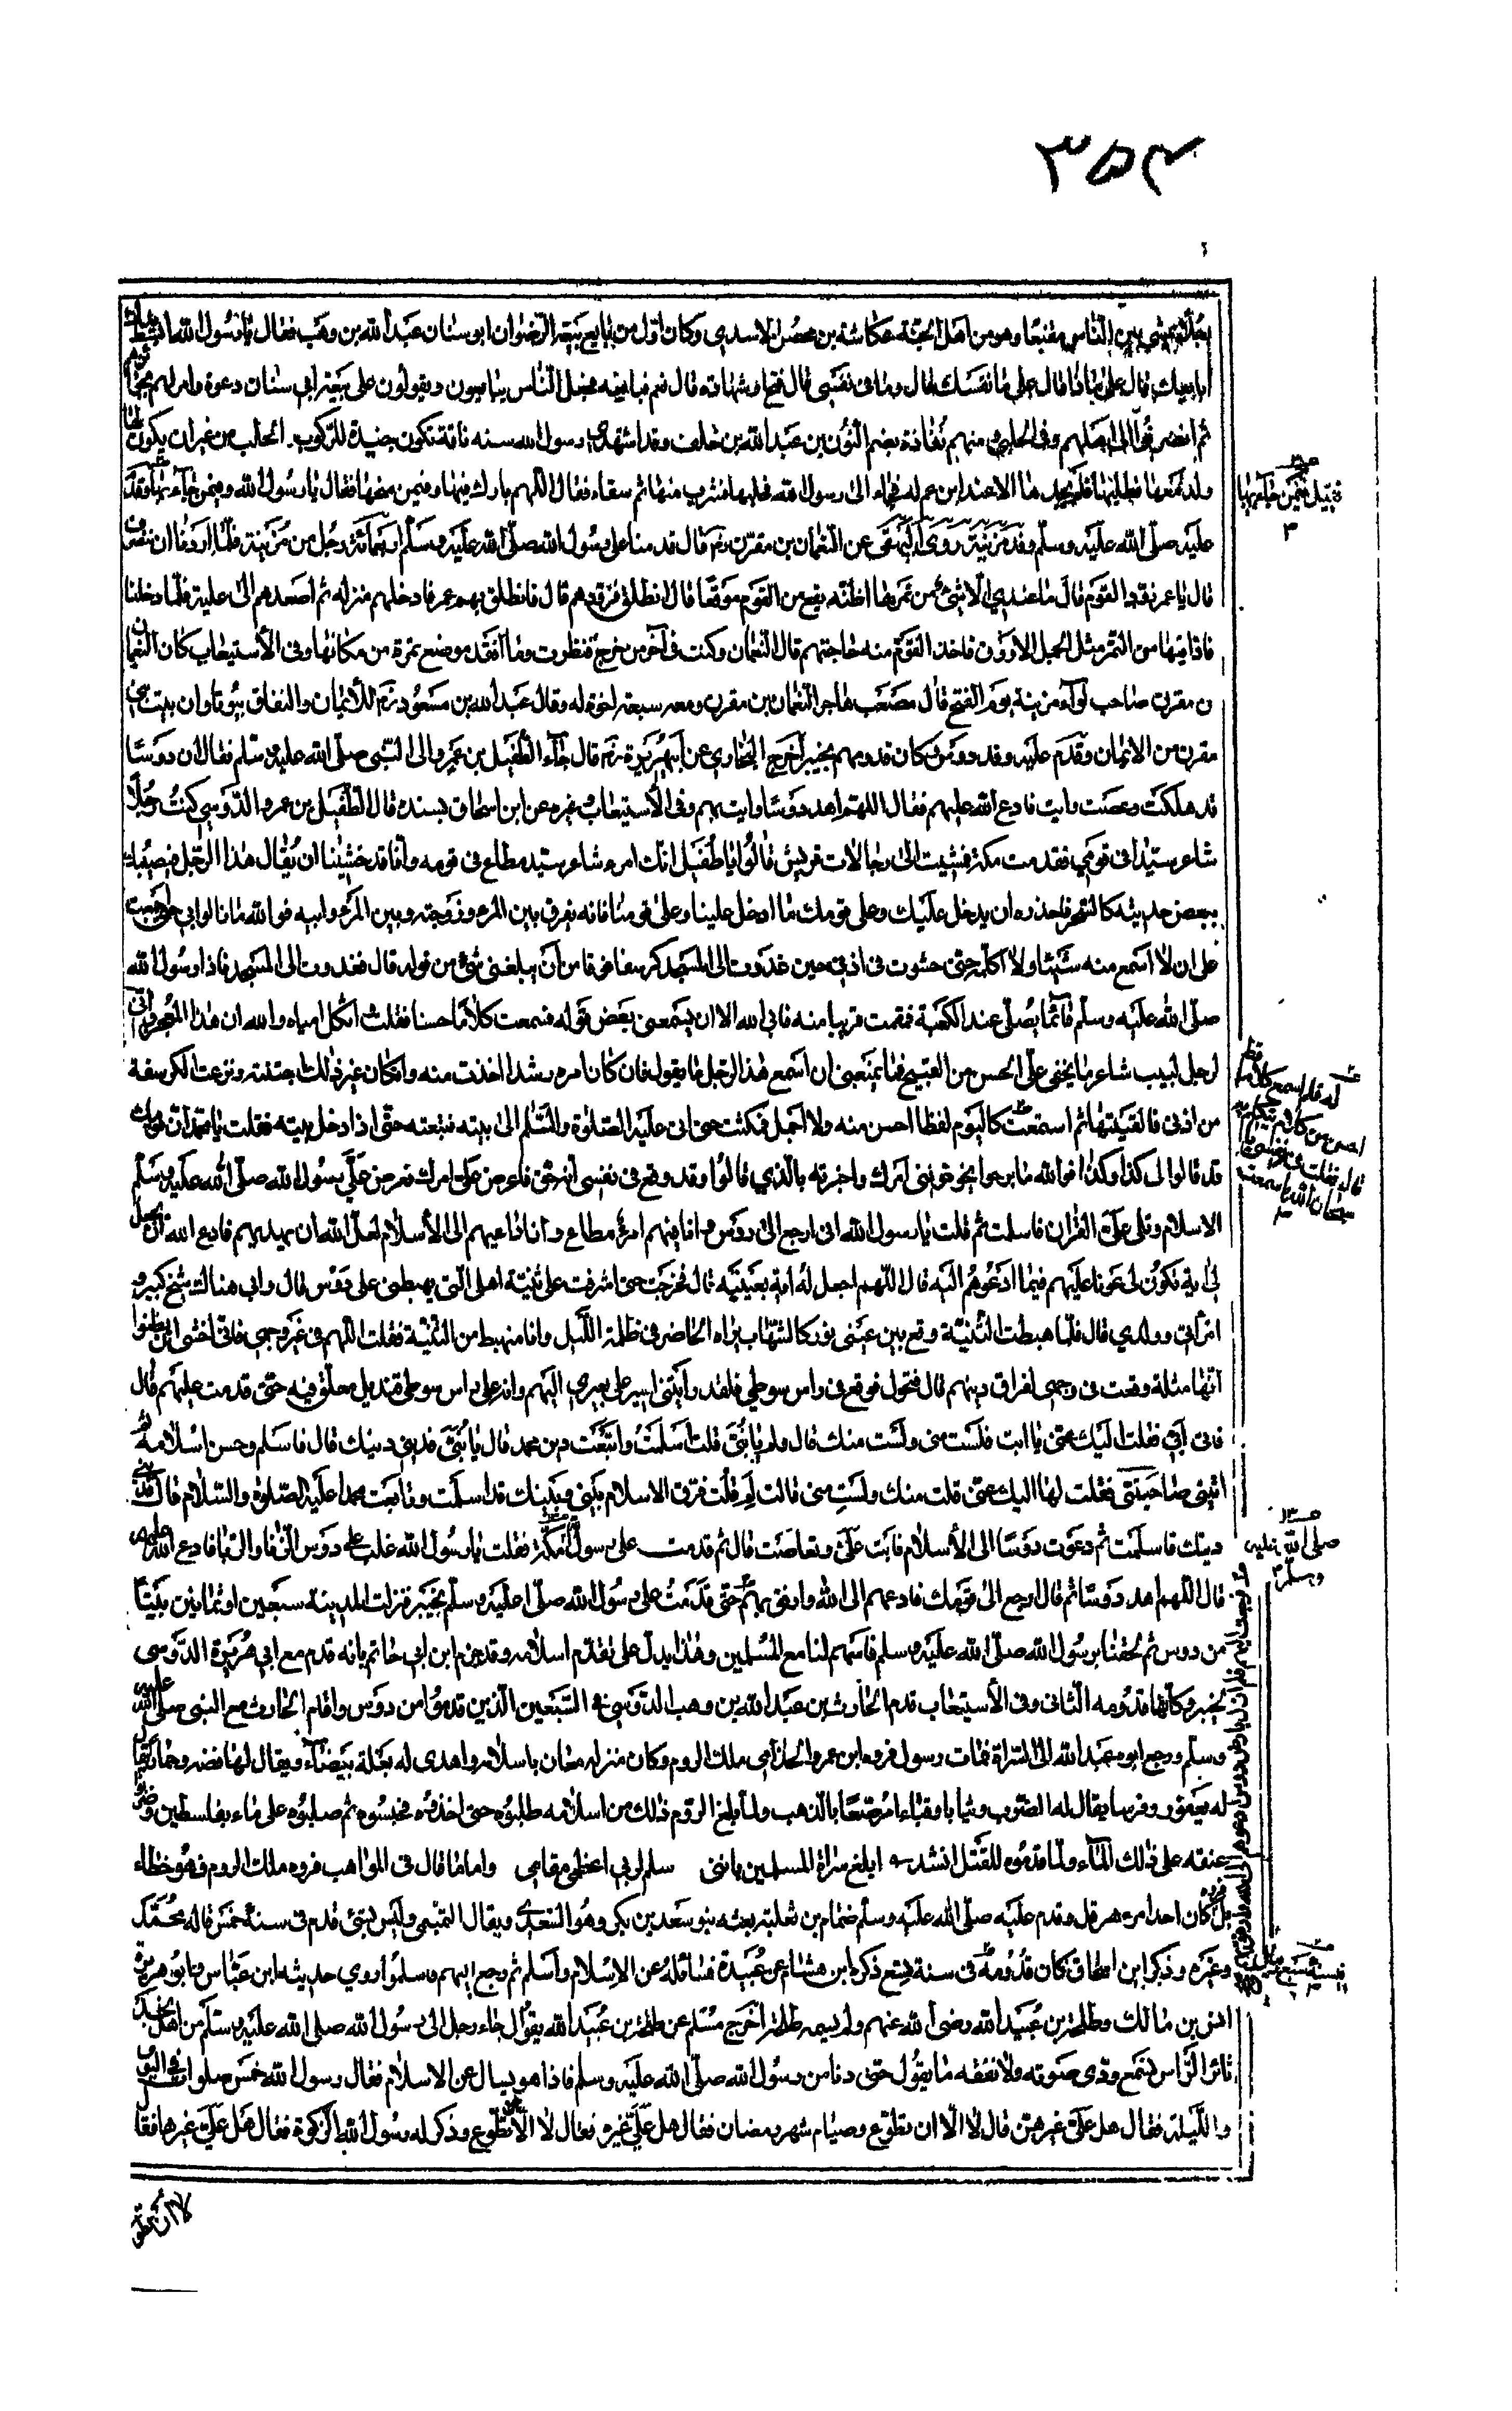 ٣٥٤
يمشي بين الناس مقنعا وهو من اهل الجنة عكاشة بن محصن الاسدي وكان اول من بايع بيعة الرضوان ابو سنان عبد الله بن وهب فقال يا رسول الله ابسط يدك
ابايعك قال على ماذا قال على ما في نفسك قال وما في نفسي قال فتح او شهادة قال نعم فبايعه فجعل الناس يبايعون ويقولون على بيعة ابي سنان
ثم انصرفوا الى اهليهم وفي الحلبي ومنهم نفادة بضم النون بن عبد الله بن خلف وقد استهدى رسول الله منه ناقة تكون جيدة للركوب والحلب من غير ان يكون لها
ولد معها فطلبها فلم يجدها الا عند ابن عم له فجاء الى رسول الله فحلبها فشرب منها ثم سقاه فقال اللهم بارك فيها وفيمن منحها فقال يا رسول الله وفيمن جاء بها وقدم
عليه صلى الله عليه وسلم وفد مزينة روى البيهقي عن النعمان بن مقرن رض قال قدمنا على رسول الله صلى الله عليه وسلم اربعمائة رجل من مزينة فلما اردنا ان ننصرف
قال يا عمر زود القوم قال ما عندي الا شيء من تمر ما اظنه يقع من القوم موقعا قال انطلق فزودهم قال فانطلق بهم عمر فادخلهم منزله ثم اصعدهم الى علية فلما دخلنا
فاذا فيها من التمر مثل الجمل الاورق فاخذ القوم منه حاجتهم قال النعمان وكنت في آخر من خرج فنظرت وما افقد موضع تمرة من مكانها وفي الاستيعاب كان النعمان
بن مقرن صاحب لواء مزينة يوم الفتح قال مصعب هاجر النعمان بن مقرن ومعه سبعة اخوة له وقال عبد الله بن مسعود رض للايمان والنفاق بيوتا وان بيت بني
مقرن من الايمان وقدم عليه وفد دوس وكان قدومهم بخيبر اخرج البخاري عن ابي هريرة رض قال جاء الطفيل بن عمرو الى النبي صلى الله عليه وسلم فقال ان دوسا
قد هلكت وعصت وابت فادع الله عليهم فقال اللهم اهد دوسا وايت بهم وفي الاستيعاب وغيره عن ابن اسحاق بسنده قال الطفيل بن عمرو الدوسي كنت رجلا
شاعرا سيدا في قومي فقدمت مكة فمشيت الى رجالات قريش قالوا يا طفيل انك امرء شاعر سيد مطاع في قومه وانا قد خشينا ان يلقاك هذا الرجل فيصيبك
ببعض حديثه كالسحر فاحذره ان يدخل عليك وعلى قومك ما ادخل علينا وعلى قومنا فانه يفرق بين المرء وزوجته وبين المرء وابيه فوالله ما زالوا بي حتى اجمعت
على ان لا اسمع منه شيئا ولا اكلمه حتى حشوت في اذني حين غدوت الى المسجد كرسفا فرقا من ان يبلغني شيء من قوله قال فغدوت الى المسجد فاذا رسول الله
صلى الله عليه وسلم قائما يصلي عند الكعبة فقمت قريبا منه فابى الله الا ان يسمعني بعض قوله فسمعت كلاما حسنا فقلت اثكل امياه والله ان هذا واني
لرجل لبيب شاعر ما يخفى علي الحسن من القبيح فما يمنعني ان اسمع هذا الرجل ما يقول فان كان امره رشدا اخذت منه وان كان غير ذلك اجتنبته ونزعت الكرسفة
من اذني فالقيتها ثم استمعت كاليوم لفظا احسن منه ولا اجمل فمكثت حتى اتى عليه الصلوة والسلام الى بيته فتبعته حتى اذا دخل بيته فقلت يا محمد ان قومك
قد قالوا لي كذا وكذا فوالله ما برحوا يخوفوني امرك واخبرته بالذي قالوا وقد وقع في نفسي انه حق فاعرض علي امرك فعرض علي رسول الله صلى الله عليه وسلم
الاسلام وتلى علي القران فاسلمت ثم قلت يا رسول الله اني ارجع الى دوس وانا فيهم امرء مطاع وانا داعيهم الى الاسلام لعل الله ان يهديهم فادع الله ان يجعل
لي اية تكون لي عونا عليهم فيما ادعوهم اليه قال اللهم اجعل له اية بعينيه قال فخرجت حتى اشرفت على ثنية اهلي التي يهبطني على دوس قال وابي هنالك شيخ كبير و
امرأتي وولدي قال فلما هبطت الثنية وقع بين عيني نور كالشهاب يراه الحاضر في ظلمة الليل وانا منهبط من الثنية فقلت اللهم في غير وجهي فاني اخشى ان يظنوا
انها مثلة وقعت في وجهي لفراق دينهم قال فتحول فوقع في راس سوطي فلقد رأيتني اسير على بعيري اليهم وانه على راس سوطي قنديل معلق فيه حتى قدمت عليهم قال
فاتى ابي فقلت اليك عني يا ابت فلست مني ولست منك قال ولم يا بني قلت اسلمت واتبعت دين محمد قال يا بني فديني دينك قال فاسلم وحسن اسلامه ثم
اتتني صاحبتي فقلت لها اليك عني قلت منك ولست مني قالت لم قلت فرق الاسلام بيني وبينك قد اسلمت وتابعت محمدا عليه الصلوة والسلام قالت فديني
دينك فاسلمت ثم دعوت دوسا الى الاسلام فابت علي وتعاصت قال ثم قدمت على رسول الله مكة فقلت يا رسول الله غلب على دوس الزنا والربا فادع الله عليهم
قال اللهم اهد دوسا ثم قال ارجع الى قومك فادعهم الى الله وارفق بهم حتى قدمت على رسول الله صلى الله عليه وسلم بخيبر فنزلت المدينة سبعين او ثمانين بيتا
من دوس ثم لحقنا برسول الله صلى الله عليه وسلم فاسهم لنا مع المسلمين وهذا يدل على تقدم اسلامه وقد جزم ابن ابي حاتم بانه قدم مع ابي هريرة الدوسي
بخيبر وكانها قدومه الثاني وفي الاستيعاب قدم الحارث بن عبد الله بن وهب الدوسي في السبعين الذين قدموا من دوس واقام الحارث مع النبي صلى الله عليه
وسلم ورجع ابوه عبد الله الى السراة فمات رسول فروه ابن عمرو الجذامي ملك الروم وكان منزله معان باسلامه واهدى له بغلة بيضاء ويقال لها فضه وحمارا يقال
له يعفور وفرسا يقال له الضرب وثيابا وقباء مرصعا بالذهب ولما بلغ الروم ذلك من اسلامه طلبوه حتى اخذوه فحبسوه ثم صلبوه على ماء بفلسطين وضربوا
عنقه على ذلك الماء ولما قدموه للقتل انشد ابلغ سراة المسلمين بانني سلم لربي اعظمي ومقامي واما ما قال في المواهب فروه ملك الروم فهو خطاء
بل كان احد امراء هرقل وقدم عليه صلى الله عليه وسلم ضمام بن ثعلبة بعثه بنو سعد بن بكر وهو السعدي ويقال التميمي وليس بشيء قدم في سنة خمس قاله محمد
وغيره وذكر ابن اسحاق كان قدومه في سنة تسع ذكر ابن هشام عن عبيدة فسأله عن الاسلام واسلم ثم رجع اليهم واسلموا روي حديثه ابن عباس وابو هريرة
انس بن مالك وطلحة بن عبيد الله رضي الله عنهم ولم يسمه طلحة اخرج مسلم عن طلحة بن عبيد الله يقول جاء رجل الى رسول الله صلى الله عليه وسلم من اهل نجد
ثائر الراس يسمع دوي صوته ولا نفقه ما يقول حتى دنا من رسول الله صلى الله عليه وسلم فاذا هو يسال عن الاسلام فقال رسول الله خمس صلوات في اليوم
والليلة فقال هل علي غيرهن قال لا الا ان تطوع وصيام شهر رمضان فقال هل علي غيره فقال لا الا ان تطوع وذكر له رسول الله الزكوة فقال هل علي غيرها فقا
لا الا ان تطوع
صلى الله عليه
وسلم